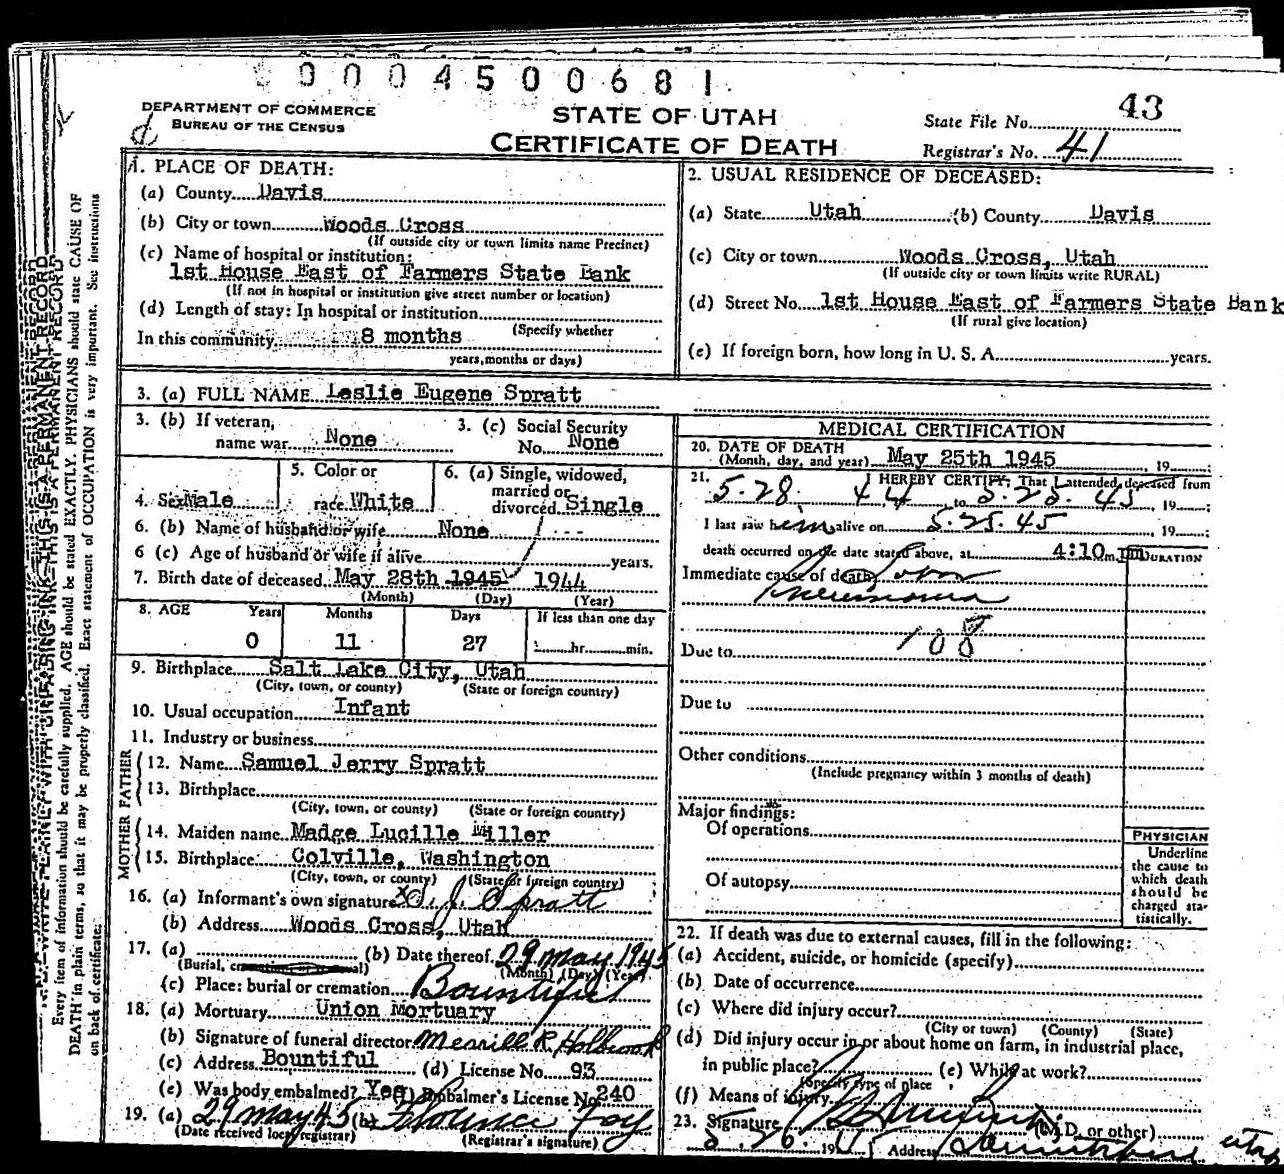 0004500681
DEPARTMENT OF COMMERCE
BUREAU OF THE CENSUS
STATE OF UTAH
CERTIFICATE OF DEATH
State File No. 43
Registrar's No. 41
1. PLACE OF DEATH:
(a) County Davis
(b) City or town Woods Cross
(If outside city or town limits name Precinct)
(c) Name of hospital or institution:
1st House East of Farmers State Bank
(If not in hospital or institution give street number or location)
(d) Length of stay: In hospital or institution
(Specify whether
In this community 8 months
years, months or days)
2. USUAL RESIDENCE OF DECEASED:
(a) State Utah (b) County Davis
(c) City or town Woods Cross, Utah
(If outside city or town limits write RURAL)
(d) Street No. 1st House East of Farmers State Bank
(If rural give location)
(e) If foreign born, how long in U. S. A. years.
3. (a) FULL NAME Leslie Eugene Spratt
3. (b) If veteran,
name war None
3. (c) Social Security
No. None
4. Sex Male
5. Color or
race White
6. (a) Single, widowed,
married or
divorced Single
6. (b) Name of husband or wife None
6 (c) Age of husband or wife if alive years.
7. Birth date of deceased May 28th 1945 1944
(Month) (Day) (Year)
8. AGE Years Months Days If less than one day
0 11 27 hr. min.
9. Birthplace Salt Lake City, Utah
(City, town, or county) (State or foreign country)
10. Usual occupation Infant
11. Industry or business
FATHER
12. Name Samuel Jerry Spratt
13. Birthplace
(City, town, or county) (State or foreign country)
MOTHER
14. Maiden name Madge Lucille Miller
15. Birthplace Colville, Washington
(City, town, or county) (State or foreign country)
16. (a) Informant's own signature x S. J. Spratt
(b) Address Woods Cross, Utah
17. (a) (b) Date thereof 29 May 1945
(Burial, cremation or removal) (Month) (Day) (Year)
(c) Place: burial or cremation Bountiful
18. (a) Mortuary Union Mortuary
(b) Signature of funeral director Merrill R. Holbrook
(c) Address Bountiful (d) License No. 93
(e) Was body embalmed? Yes (f) Embalmer's License No. 240
19. (a) 29 May 45 (b) Florence Foy
(Date received local registrar) (Registrar's signature)
MEDICAL CERTIFICATION
20. DATE OF DEATH
(Month, day, and year) May 25th 1945, 19
21. I HEREBY CERTIFY, That I attended deceased from
5.28 44 to 5.25.45, 19
I last saw him alive on 5.25.45 19
death occurred on the date stated above, at 4:10 m.
DURATION
Immediate cause of death Lobar
Pneumonia
108
Due to
Due to
Other conditions
(Include pregnancy within 3 months of death)
Major findings:
Of operations
Of autopsy
PHYSICIAN
Underline
the cause to
which death
should be
charged sta-
tistically.
22. If death was due to external causes, fill in the following:
(a) Accident, suicide, or homicide (specify)
(b) Date of occurrence
(c) Where did injury occur?
(City or town) (County) (State)
(d) Did injury occur in or about home on farm, in industrial place,
in public place? (e) While at work?
(Specify type of place
(f) Means of injury
23. Signature (M.D. or other)
5.26 19 Address Utah
N. B. WRITE PLAINLY WITH UNFADING INK THIS IS A PERMANENT RECORD
Every item of information should be carefully supplied. AGE should be stated EXACTLY. PHYSICIANS should state CAUSE OF
DEATH in plain terms, so that it may be properly classified. Exact statement of OCCUPATION is very important. See instructions
on back of certificate.